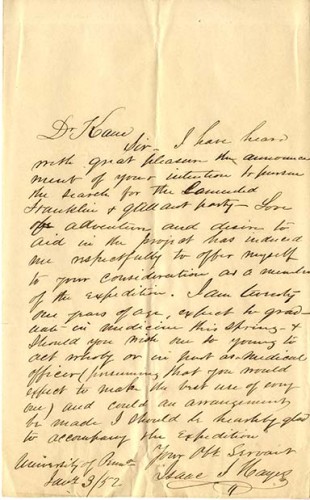 Dr Kane
Sir – I have heard
with great pleasure the announce
ment of your intention to pursue
the search for the Lamented
Franklin & gallant party – Love
of adventure and desire to
aid in the project has induced
me respectfully to offer myself
to your consideration as a member
of the expedition. I am twenty
one years of age, expect to grad-
uate in medicine this spring – &
should you wish one so young to
act wholy or in part as medical
officer (presuming that you would
expect to make the best use of every
one) and could an arrangement
be made I should be heartily glad
to accompany the Expedition
Your Obt Servant
Isaac I Hayes
University of Penn
Jany 3/52